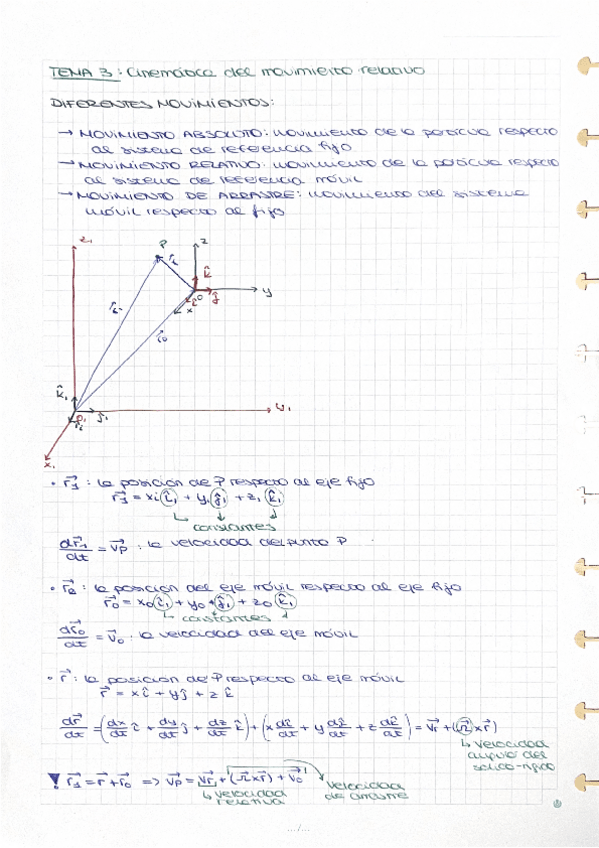 TEMA 3: Cinemática del movimiento relativo
DIFERENTES MOVIMIENTOS:
→ MOVIMIENTO ABSOLUTO: movimiento de la partícula respecto
al sistema de referencia fijo
→ MOVIMIENTO RELATIVO: movimiento de la partícula respecto
al sistema de referencia móvil
→ MOVIMIENTO DE ARRASTRE: movimiento del sistema
móvil respecto al fijo
z₁
P
z
k̂
y
ĵ
O
x
r⃗₀
k̂₁
O₁
ĵ₁
y₁
x₁
• r⃗₁: la posición de P respecto al eje fijo
r⃗₁ = x₁ î₁ + y₁ ĵ₁ + z₁ k̂₁
↳ constantes
dr⃗₁/dt = v⃗p : la velocidad del punto P
• r⃗₀: la posición del eje móvil respecto al eje fijo
r⃗₀ = x₀ î₁ + y₀ ĵ₁ + z₀ k̂₁
↳ constantes
dr⃗₀/dt = v⃗₀ : la velocidad del eje móvil
• r⃗: la posición de P respecto al eje móvil
r⃗ = x î + y ĵ + z k̂
dr⃗/dt = (dx/dt î + dy/dt ĵ + dz/dt k̂) + (x dî/dt + y dĵ/dt + z dk̂/dt) = v⃗r + (Ω⃗ x r⃗)
↳ velocidad
angular del
sólido-rígido
r⃗₁ = r⃗ + r⃗₀ => v⃗p = v⃗r + (Ω⃗ x r⃗) + v⃗₀
↳ velocidad
relativa
velocidad
de arrastre
.../...